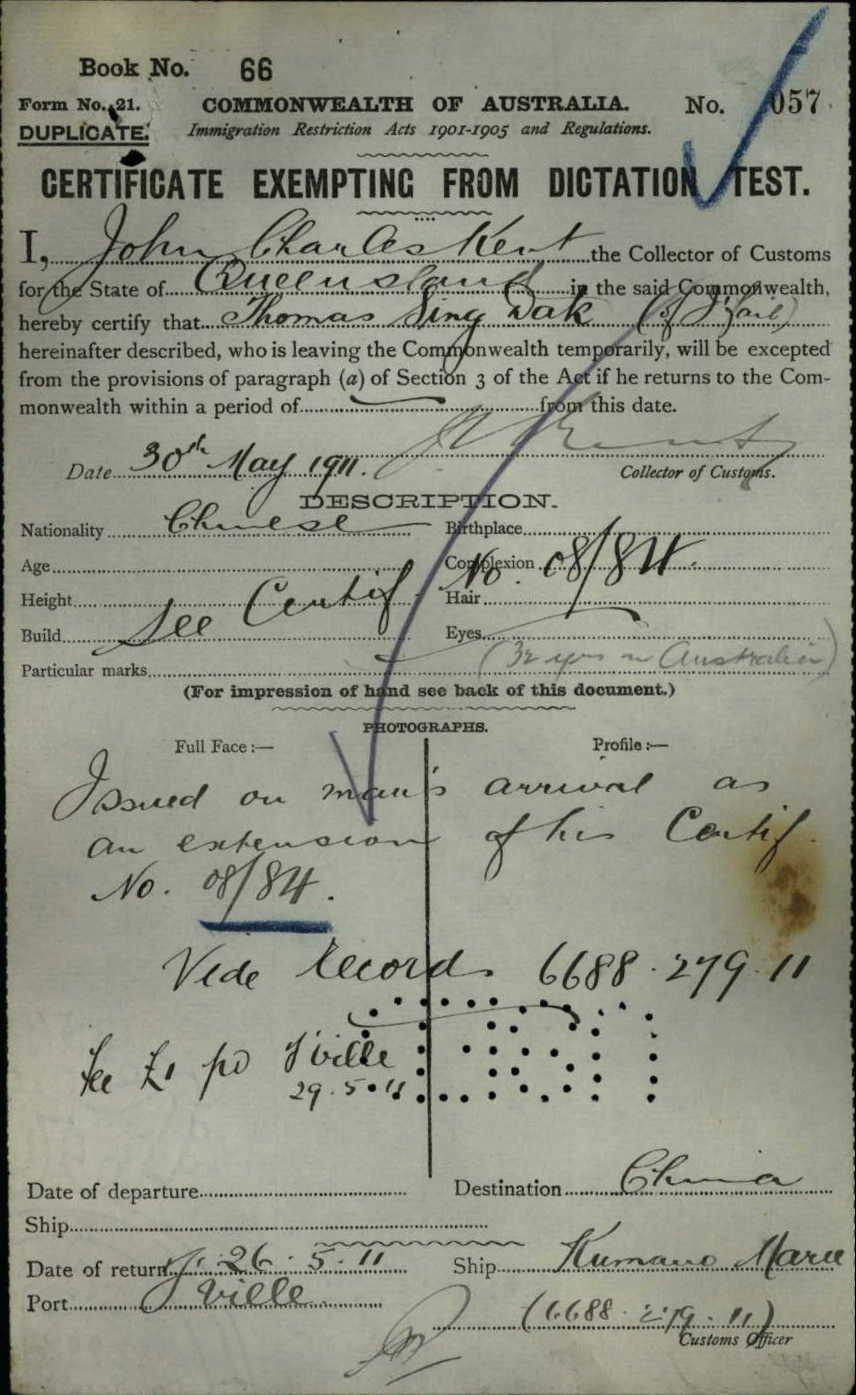 Book No. 66
Form No. 21. COMMONWEALTH OF AUSTRALIA. No. 057
DUPLICATE. Immigration Restriction Acts 1901-1905 and Regulations.
CERTIFICATE EXEMPTING FROM DICTATION TEST.
I, John Charles Kent the Collector of Customs
for the State of Queensland in the said Commonwealth,
hereby certify that Thomas Sing Dak (of
hereinafter described, who is leaving the Commonwealth temporarily, will be excepted
from the provisions of paragraph (a) of Section 3 of the Act if he returns to the Com-
monwealth within a period of from this date.
Date 30th May 1911. Collector of Customs.
DESCRIPTION.
Nationality Chinese Birthplace
Age Complexion
Height Hair
See Certif No. 08/84.
Build Eyes
(32 yrs in Australia)
Particular marks
(For impression of hand see back of this document.)
PHOTOGRAPHS.
Full Face :— Profile :—
Issued on man's arrival as
an extension of his Certif.
No. 08/84.
Vide record 6688.279.11
Fee £1 pd T'ville
29.5.11
Date of departure Destination China
Ship
Date of return 26.5.11 Ship Kumano Maru
Port T'ville
(6688.279.11)
Customs Officer